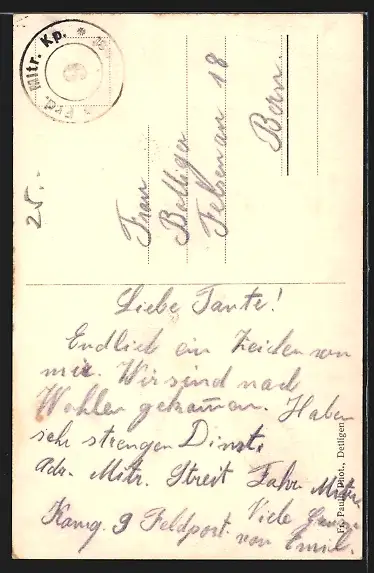 Frd. Mitr. Kp.
25.-
Frau
Balliger
Felsenau 18
Bern
Liebe Tante!
Endlich ein Zeichen von
mir. Wir sind nach
Wohlen gekommen. Haben
sehr strengen Dinst.
Adr. Mitr. Streit Fahr. Mitr.
Komp. 9 Feldpost. Viele Grüsse
von Emil.
Fr. Pauli, Phot., Detligen